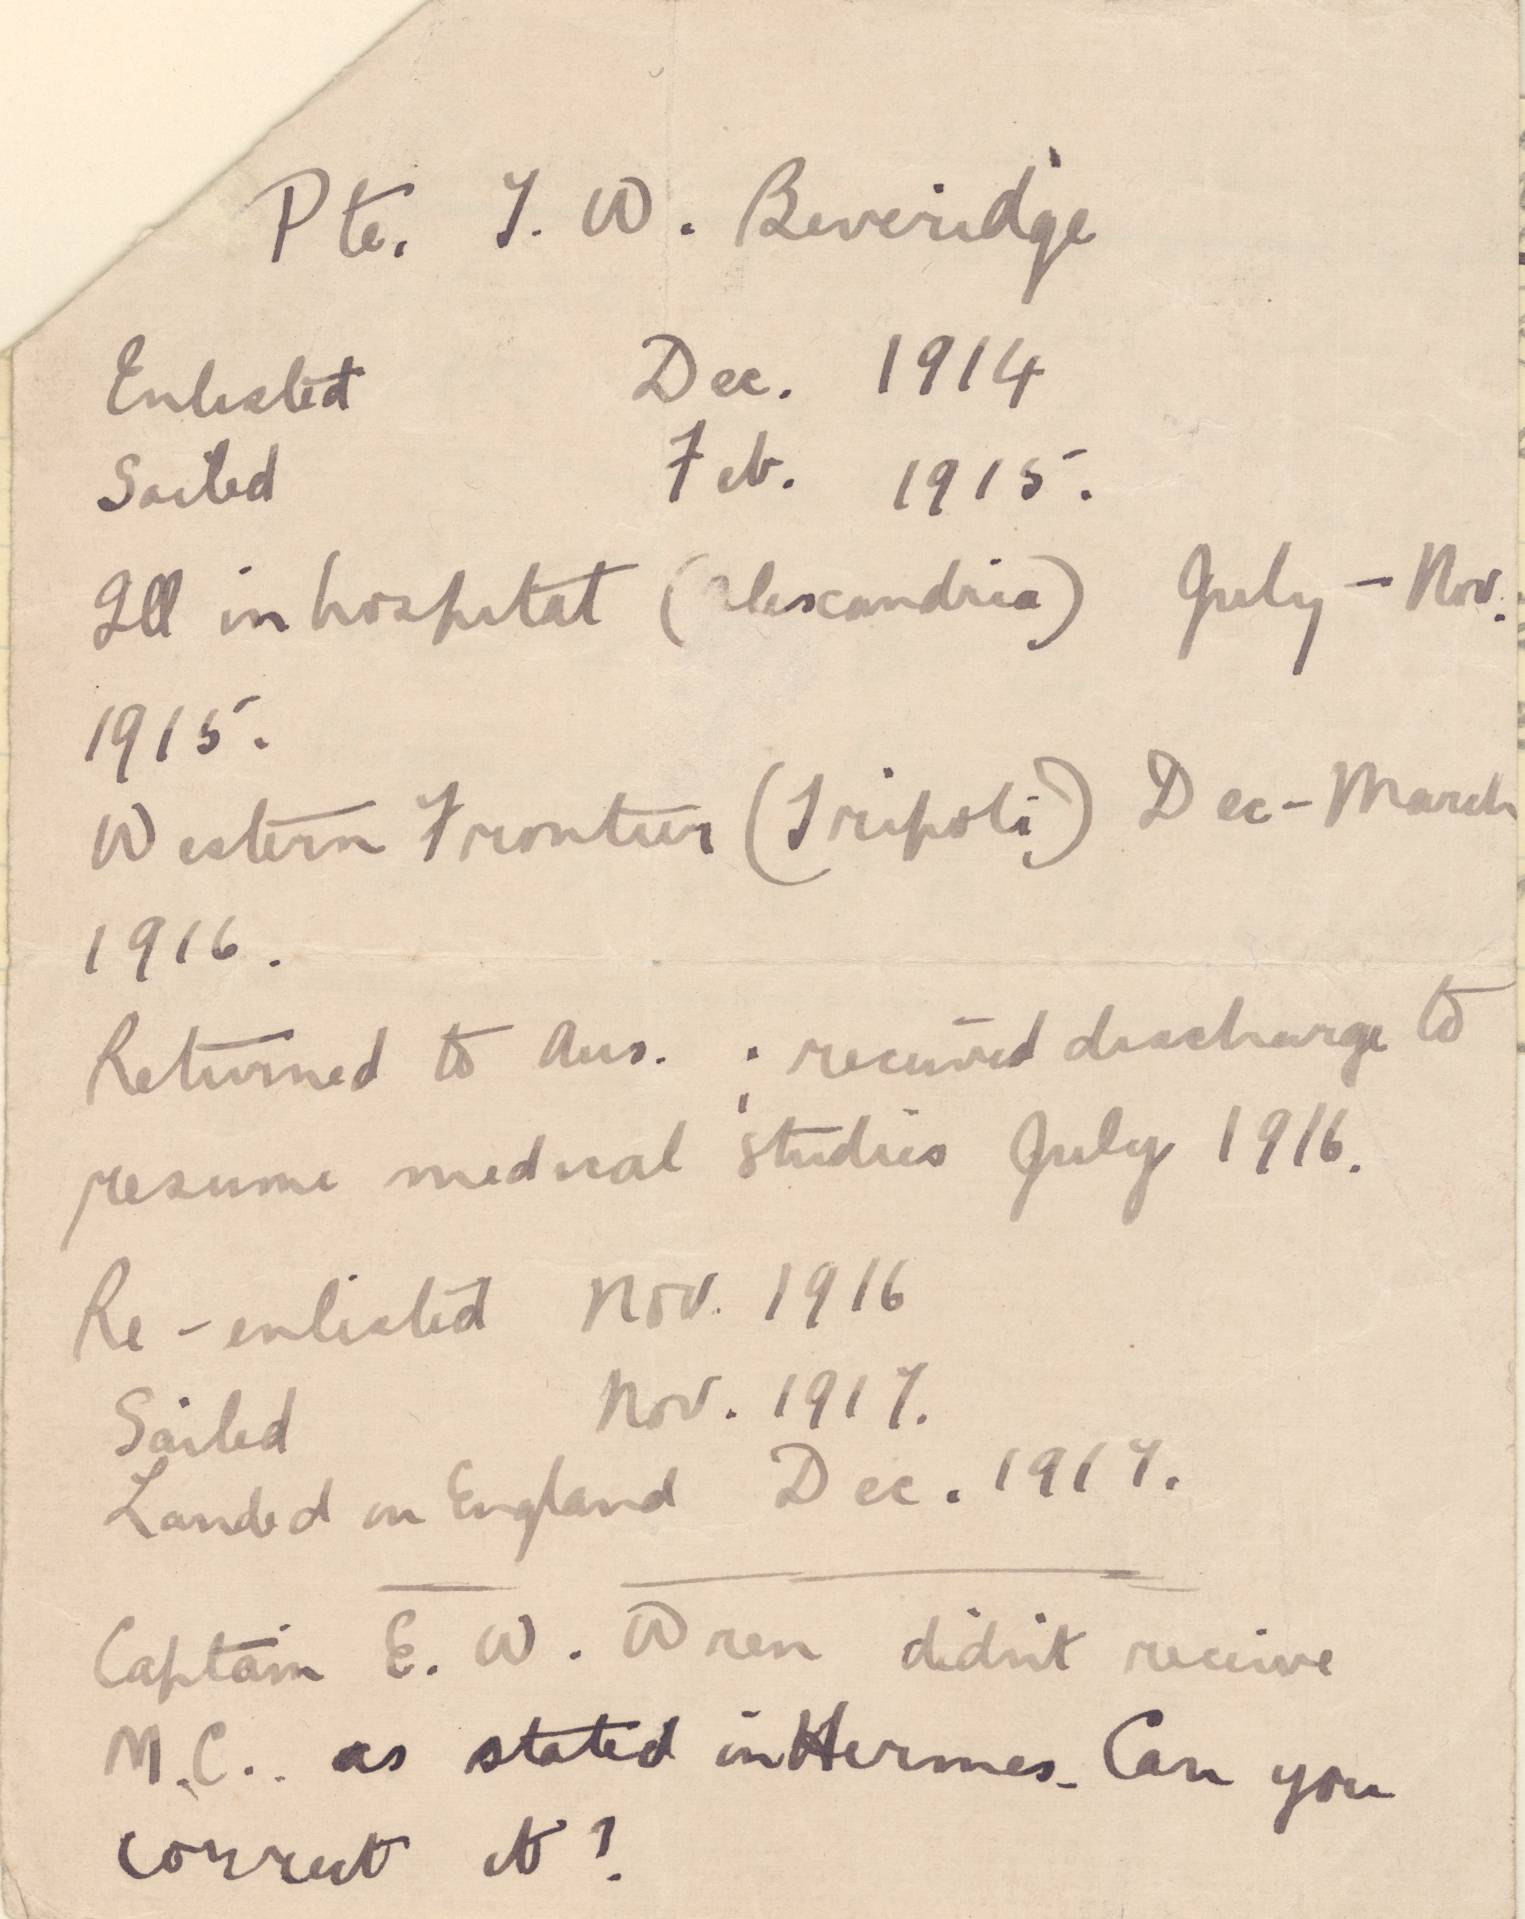 Pte. T. W. Beveridge
Enlisted Dec. 1914
Sailed Feb. 1915.
Ill in hospital (Alexandria) July - Nov.
1915.
Western Frontier (Tripoli) Dec - March
1916.
Returned to Aus. ; received discharge to
resume medical studies July 1916.
Re-enlisted Nov. 1916
Sailed Nov. 1917.
Landed in England Dec. 1917.
Captain E. W. Wren didn't receive
M.C.. as stated in Hermes. Can you
correct it?